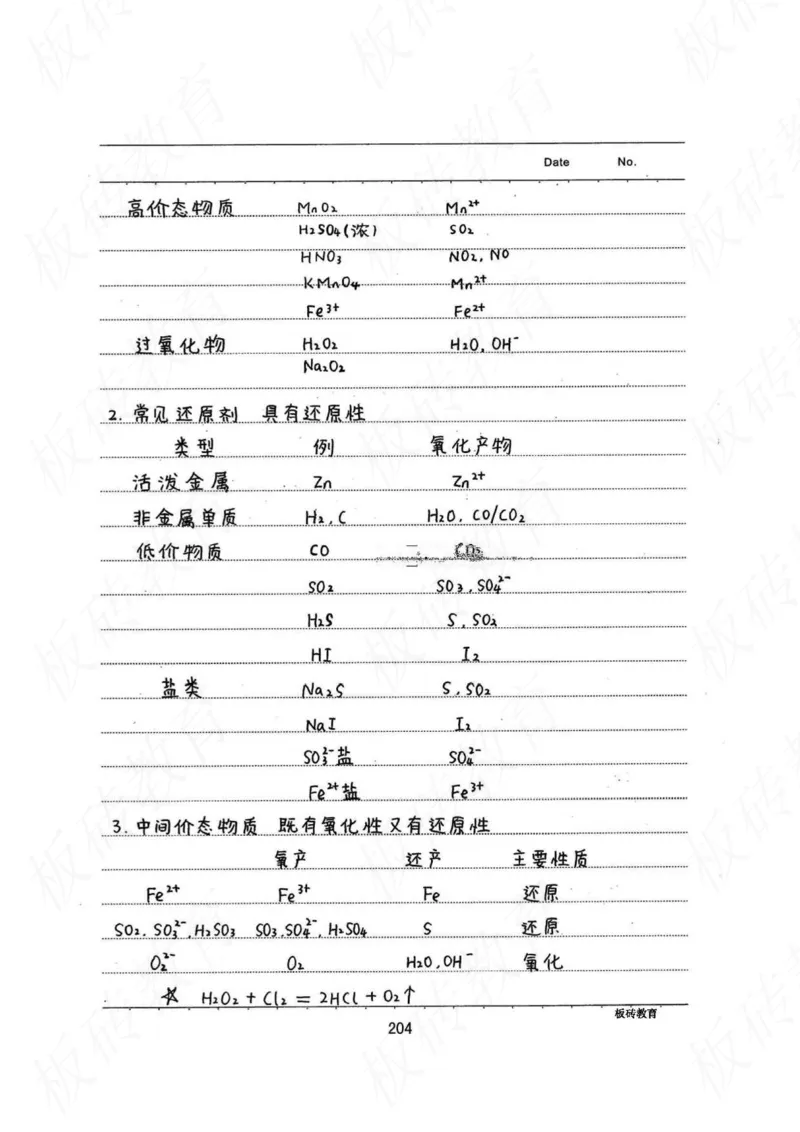 Date No.
高价态物质 MnO₂ Mn²⁺
H₂SO₄(浓) SO₂
HNO₃ NO₂, NO
KMnO₄ Mn²⁺
Fe³⁺ Fe²⁺
过氧化物 H₂O₂ H₂O, OH⁻
Na₂O₂
2. 常见还原剂 具有还原性
类型 例 氧化产物
活泼金属 Zn Zn²⁺
非金属单质 H₂, C H₂O, CO/CO₂
低价物质 CO
SO₂ SO₃, SO₄²⁻
H₂S S, SO₂
HI I₂
盐类 Na₂S S, SO₂
NaI I₂
SO₃²⁻盐 SO₄²⁻
Fe²⁺盐 Fe³⁺
3. 中间价态物质 既有氧化性又有还原性
氧产 还产 主要性质
Fe²⁺ Fe³⁺ Fe 还原
SO₂, SO₃²⁻, H₂SO₃ SO₃, SO₄²⁻, H₂SO₄ S 还原
O₂²⁻ O₂ H₂O, OH⁻ 氧化
☆ H₂O₂ + Cl₂ = 2HCl + O₂↑
板砖教育
204